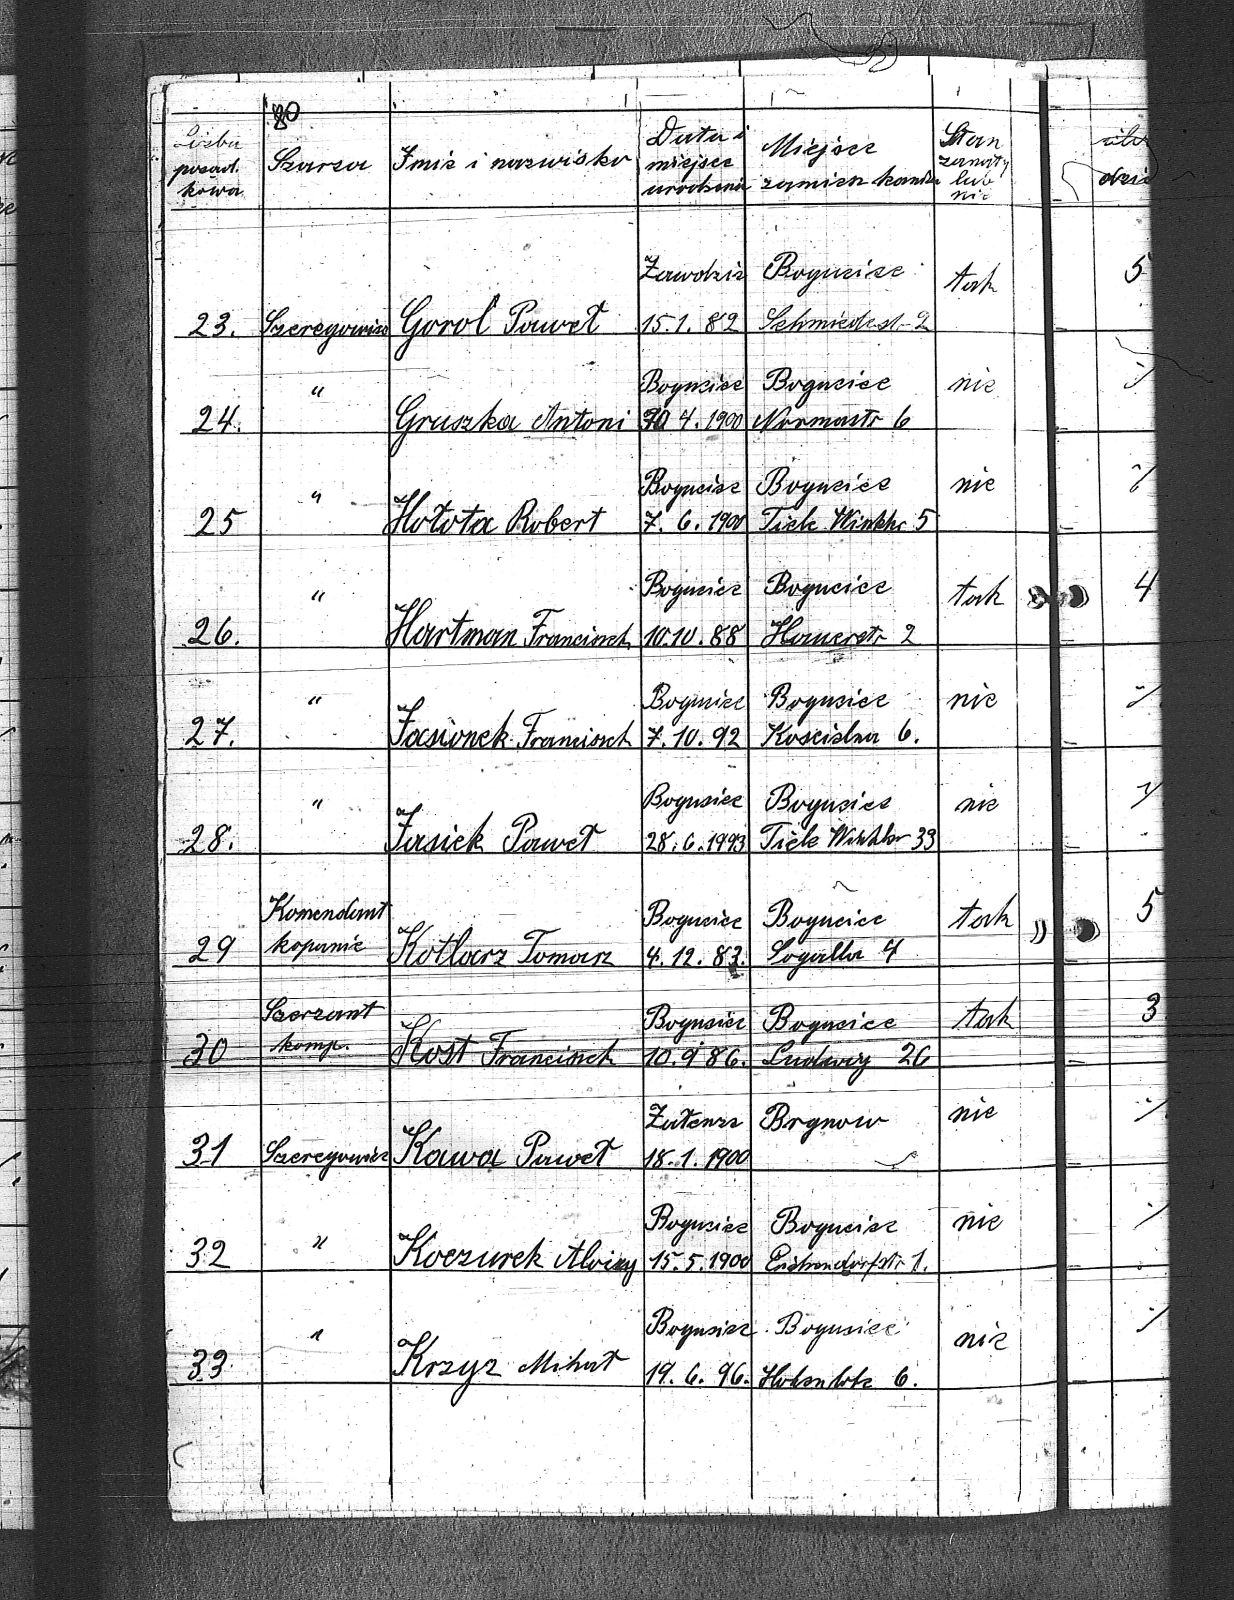 80
Liczba porząd. kowa Szarża Imię i nazwisko Data i miejsce urodzenia Miejsce zamieszkania Stan żonaty lub nie
Zawodzie Bogucice tak 5
23. Szeregowiec Gorol Paweł 15.1.82 Schmiedestr. 2
" Bogucice Bogucice nie
24. Gruszka Antoni 4.1900 Normastr 6
" Bogucice Bogucice nie
25 Hołota Robert 7.6.1900 Tiele Winkler 5
" Bogucice Bogucice tak 4
26. Hartman Francisek 10.10.88 Hauerstr 2
" Bogucice Bogucice nie
27. Jasionek Francisek 7.10.92 Kościelna 6.
" Bogucice Bogucice nie
28. Jasiek Paweł 28.6.1993 Tiele Winkler 33
Komendant Bogucice Bogucice tak 5
29 kopanie Kotlarz Tomasz 4.12.83. 4
Szerzant Bogucice Bogucice tak 3
30 komp. Kost Francisek 10.9.86. Ludwig 26
Załenze Brynow nie
31 Szeregowiec Kawa Paweł 18.1.1900
" Bogucice Bogucice nie
32 Koczurek Aloizy 15.5.1900 Eichendorfstr 1.
" Bogucice Bogucice nie
33 Krzyz Mihat 19.6.96. 6.